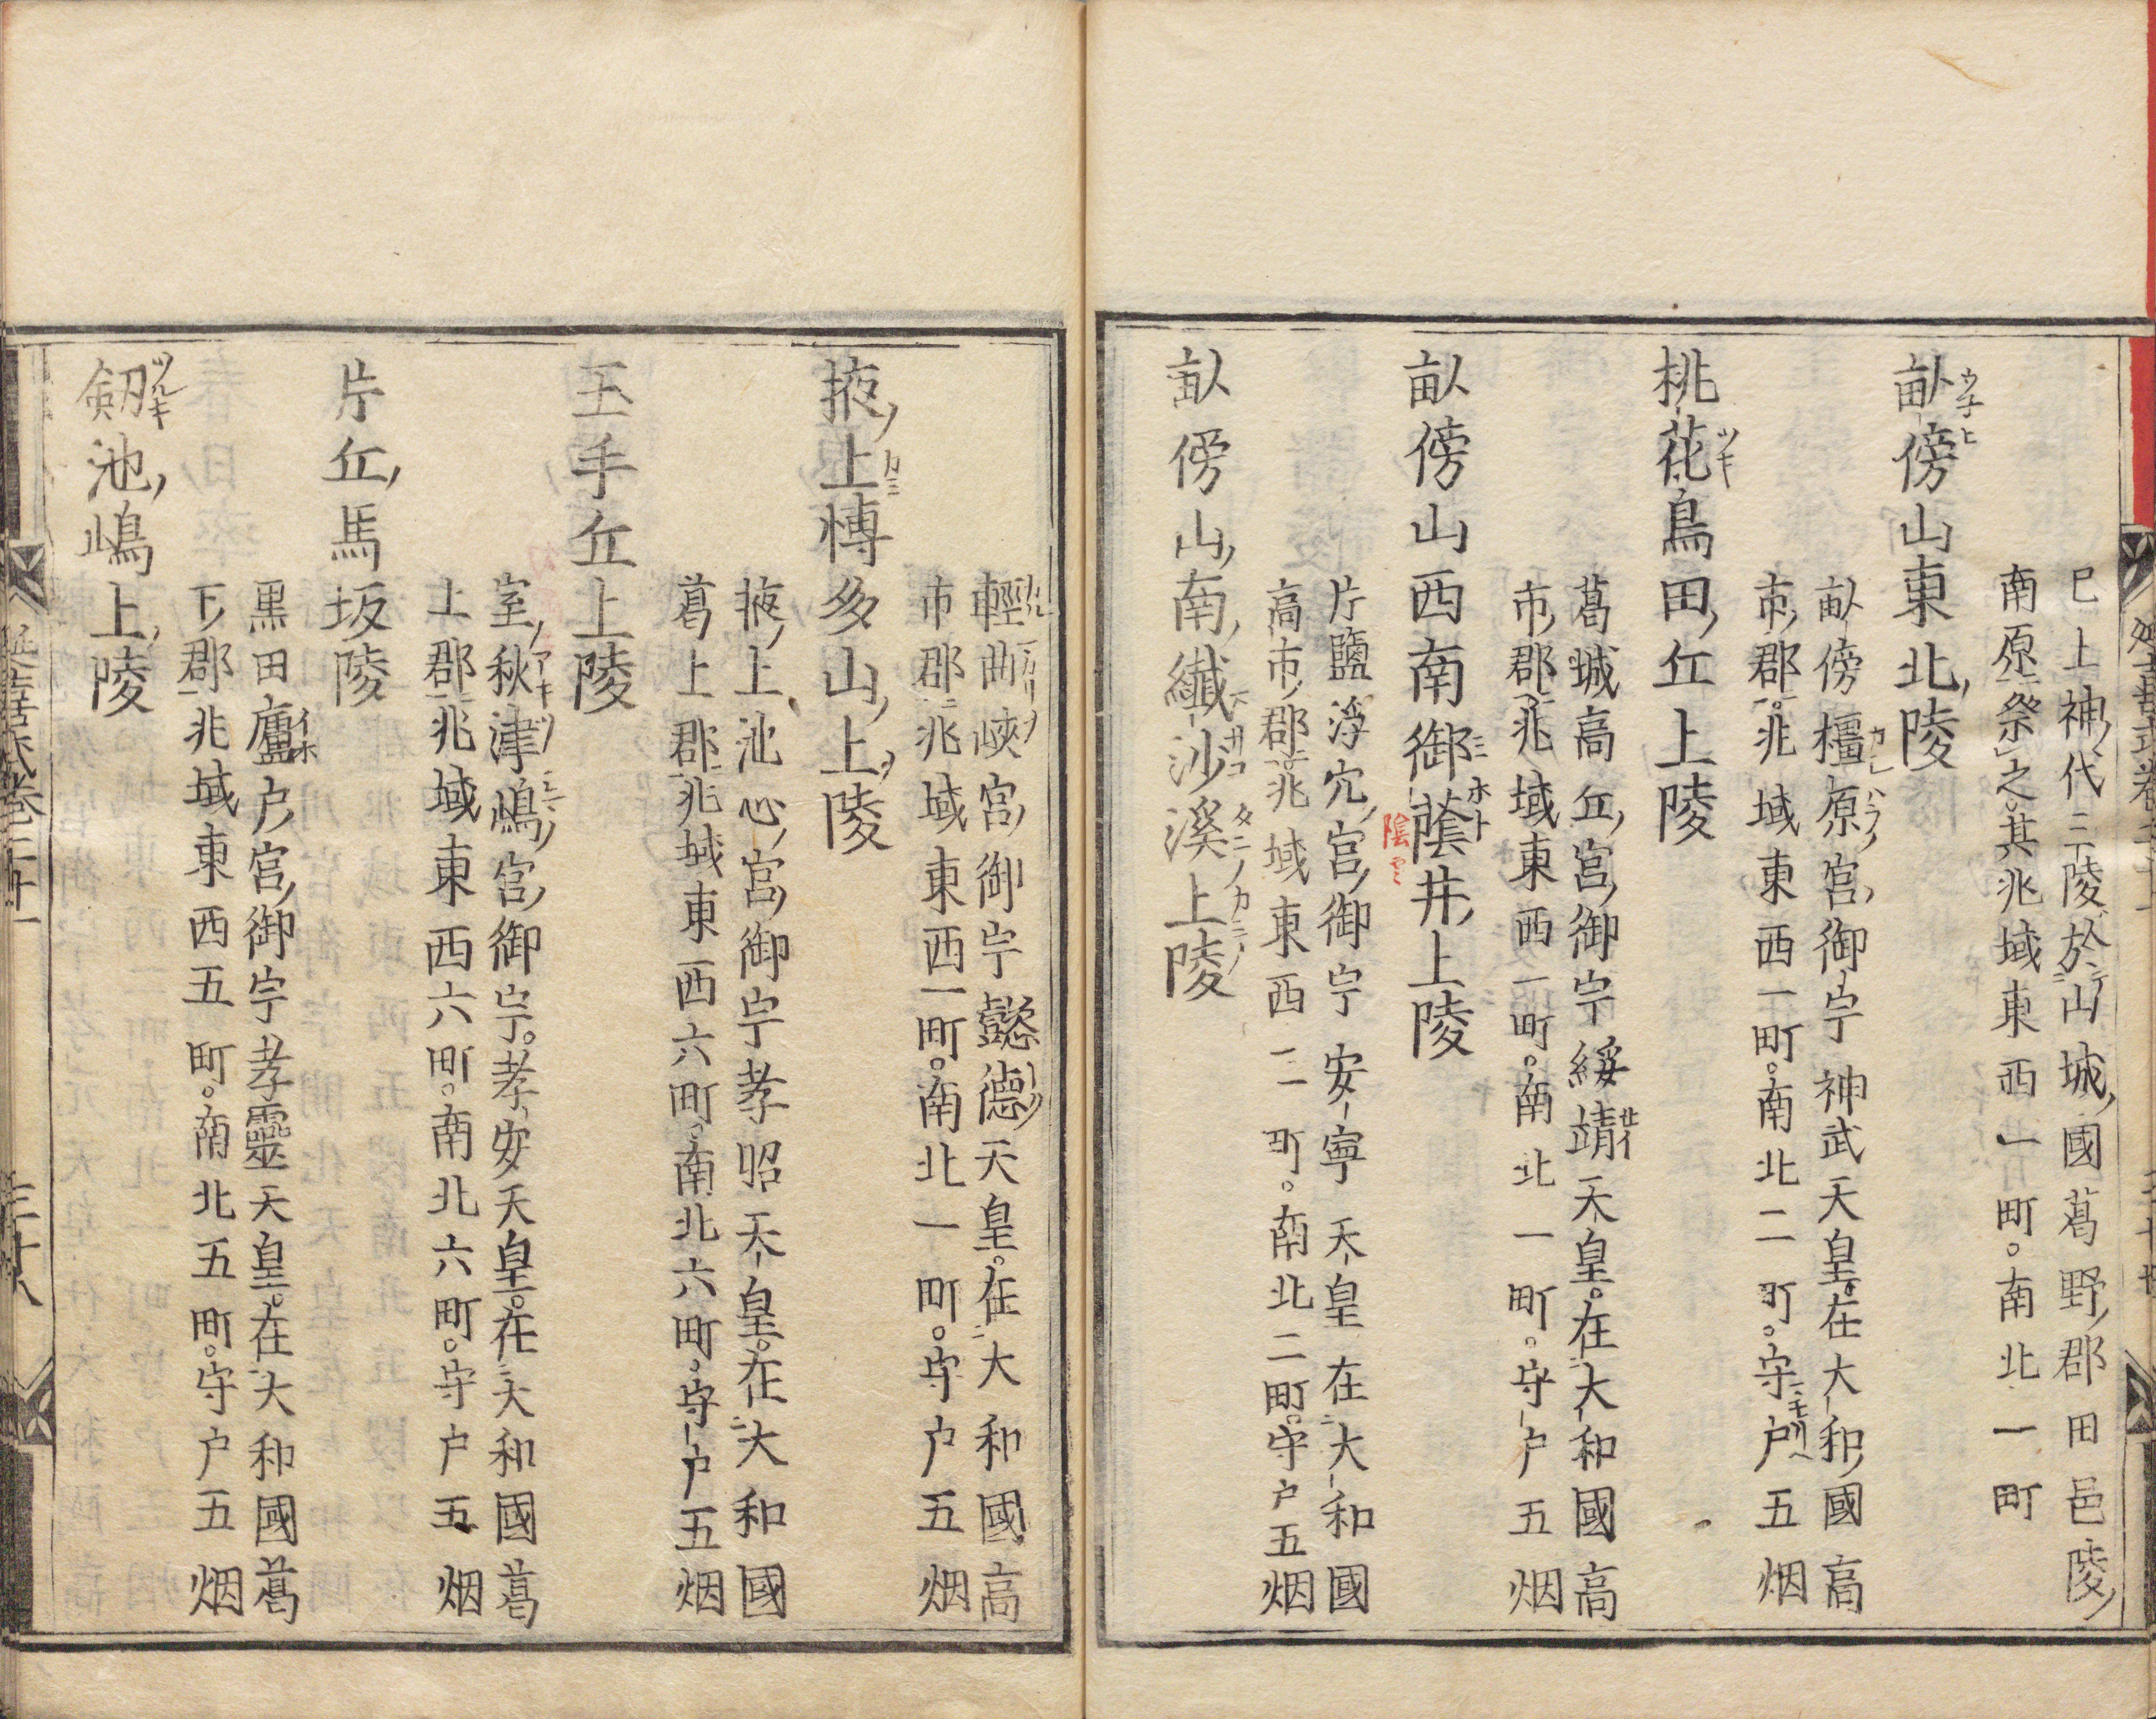 已上神代三陵於山城國葛野郡田邑陵
南原祭之其兆域東西一町。南北一町
畝傍山東北陵
畝傍橿原宮御宇神武天皇。在大和國高
市郡。兆域東西一町。南北二町。守戶五烟
桃花鳥田丘上陵
葛城高丘宮御宇綏靖天皇。在大和國高
市郡。兆域東西一町。南北一町。守戶五烟
畝傍山西南御蔭井上陵
片鹽浮穴宮御宇安寧天皇在大和國
高市郡。兆域東西二町。南北二町。守戶五烟
畝傍山南纎沙溪上陵
輕曲峽宮御宇懿德天皇。在大和國高
市郡兆域東西一町。南北一町。守戶五烟
掖上博多山上陵
掖上池心宮御宇孝昭天皇。在大和國
葛上郡兆域東西六町。南北六町。守戶五烟
玉手丘上陵
室秋津嶋宮御宇。孝安天皇。在大和國葛
上郡兆域東西六町。南北六町。守戶五烟
片丘馬坂陵
黒田廬戶宮御宇孝靈天皇。在大和國葛
下郡兆域東西五町。南北五町。守戶五烟
劔池嶋上陵
延喜式卷二十一